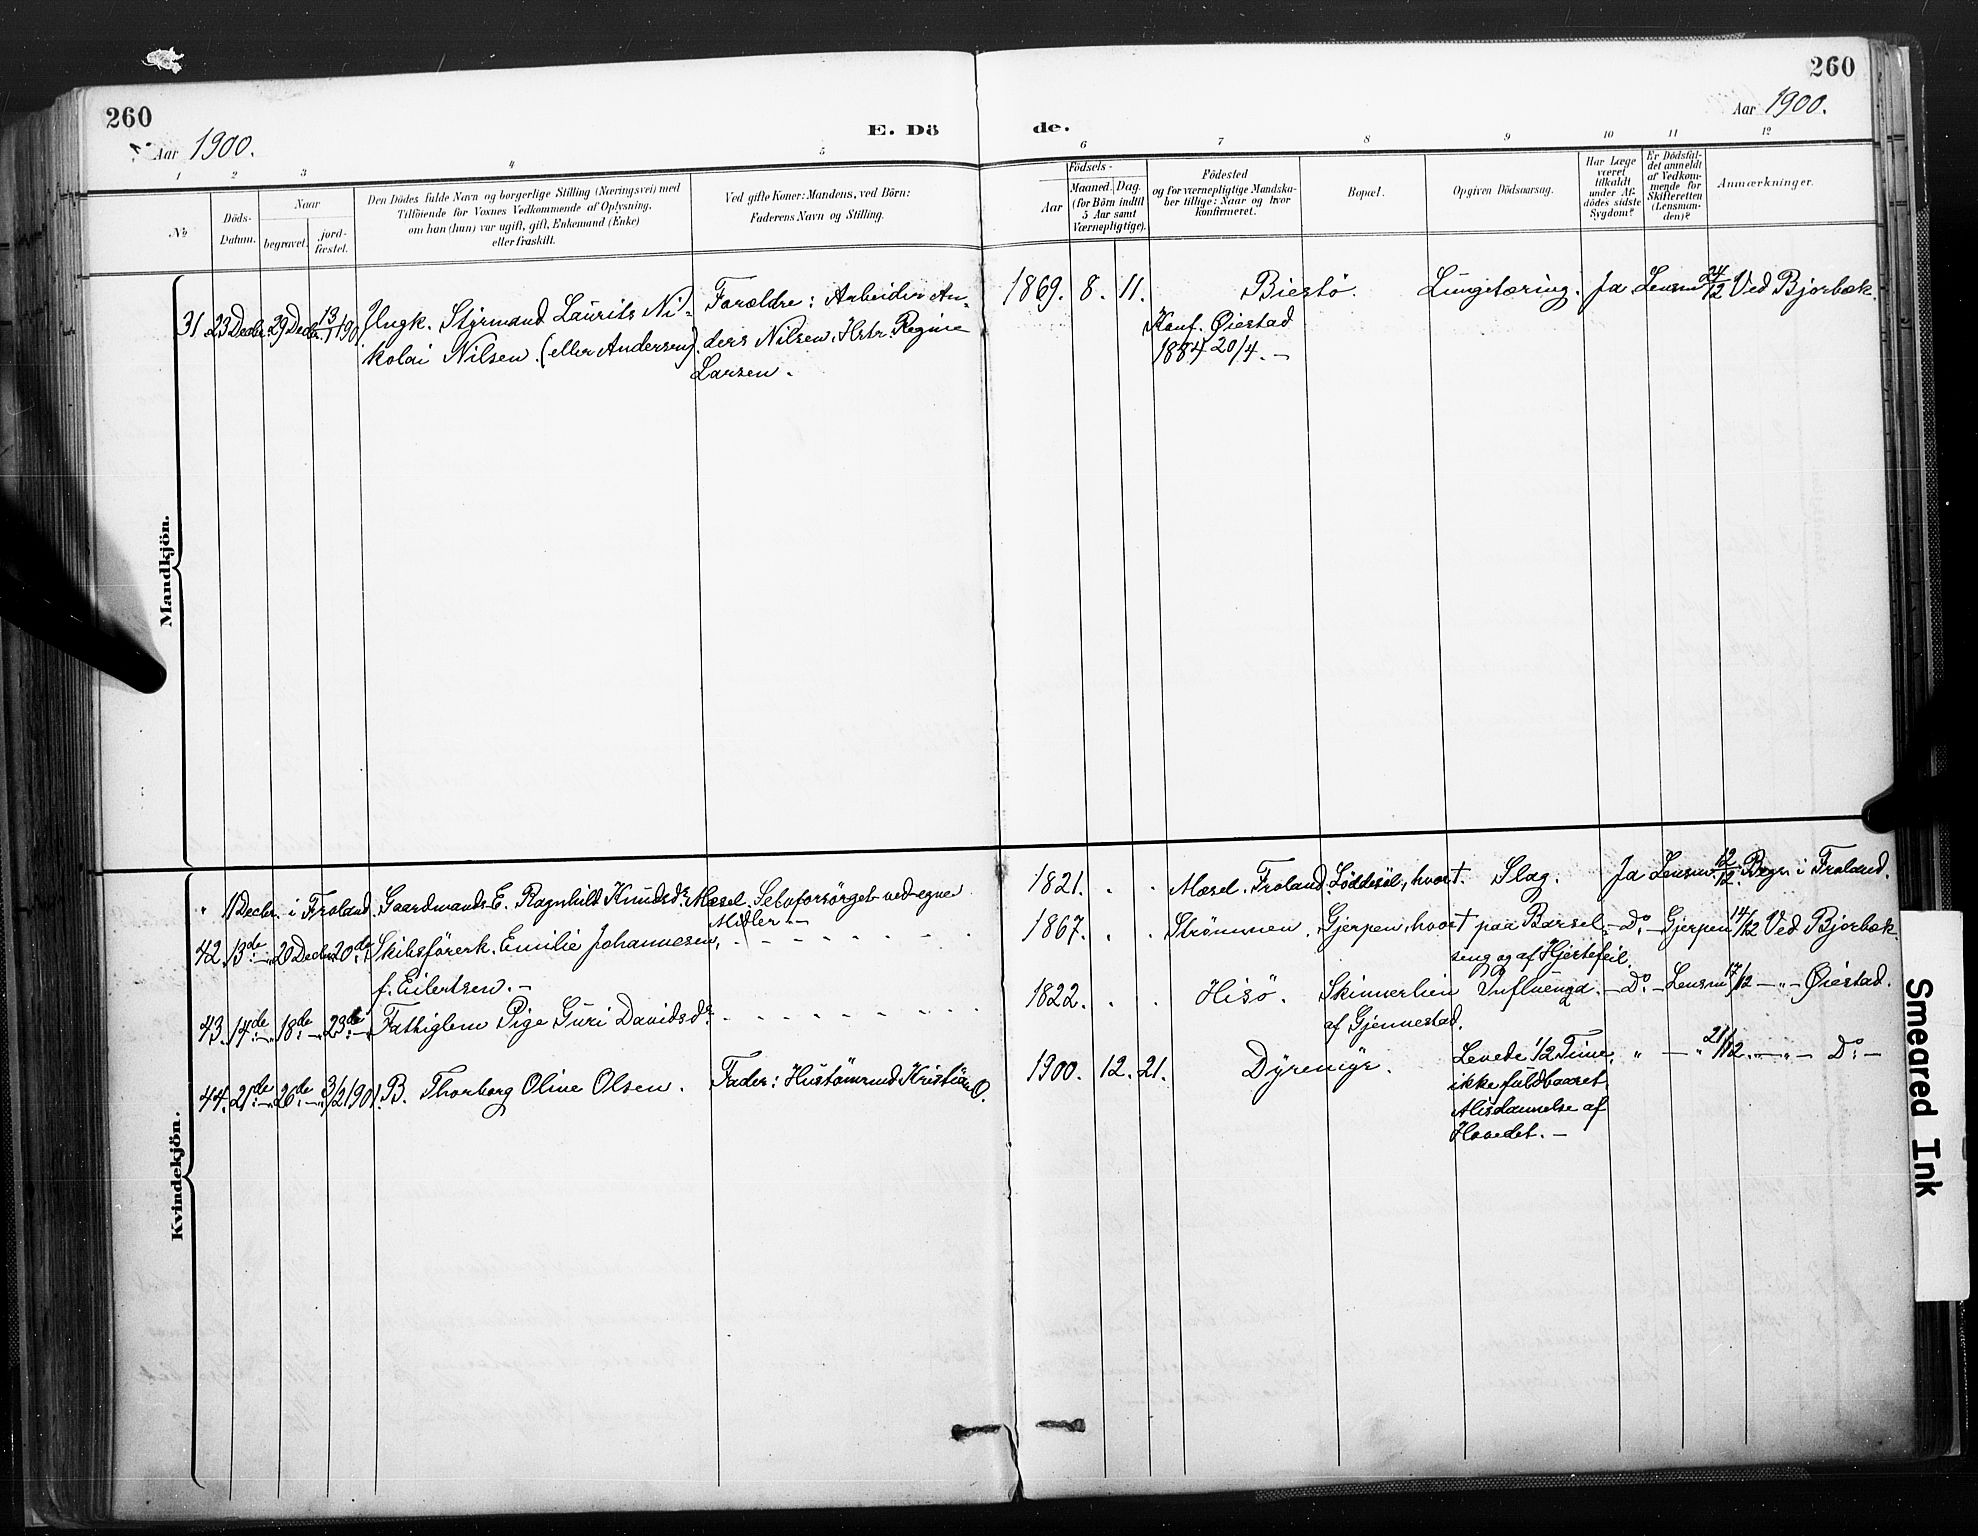 260
Aar 1900.
E. Dö
de.
260
Aar 1900.
1 2 3 4 5 6 7 8 9 10 11 12
No
Döds-
Datum.
Naar
begravet.
jord-
fæstet.
Den Dödes fulde Navn og borgerlige Stilling (Næringsvei) med
Tilföiende for Voxnes Vedkommende af Oplysning,
om han (hun) var ugift, gift, Enkemand (Enke)
eller fraskilt.
Ved gifte Koner: Mandens, ved Börn:
Faderens Navn og Stilling.
Födsels-
Aar
Maaned. Dag.
(for Börn indtil
5 Aar samt
Værnepligtige).
Födested
og for værnepligtige Mandska-
ber tillige: Naar og hvor
konfirmeret.
Bopæl.
Opgiven Dödsaarsag.
Har Læge
været
tilkaldt
under Af-
dödes sidste
Sygdom?
Er Dödsfal-
det anmeldt
af Vedkom-
mende for
Skifteretten
(Lensman-
den)?
Anmærkninger.
Mandkjön.
31 23 Decbr. 29 Decbr. 13/1 190 Ungk. Styrmand Laurits Ni-
kolai Nilsen (eller Andersen)
Forældre: Arbeider An-
ders Nilsen, Hstr. Regine
Larsen.
1869. 8. 11. Biestø. Lungetæring. Ja Lensm 24/12 Ved Bjorbæk.
Konf. Øiestad
1884 20/4. —
Kvindekjön.
" 1 Decbr. i Froland. Gaardmands E. Ragnhild Knudsdr. Mæsel. Selvforsørget ved egne
Midler —
1821. . . Mæsel. Froland. Løddesøl, hvort. Slag. Ja Lensm 12/12. Begr. i Froland.
42. 13de — 20 Decbr. 20de Skibsførerk. Emilie Johannesen,
f. Eilertsen. —
1867. . . Strømmen. Gjerpen, hvort paa Barsel- Do — Gjerpen 14/12 Ved Bjorbæk.
seng og af Hjertefeil.
43. 14de — 18de — 23de — Fattiglem Pige Guri Davidsdr.
1822. . . Hisø. Skinnerlien Influenza. — Do — Lensm 17/12 — " — Øiestad.
af Gjennestad.
44. 21de — 26de — 3/2 1901. B. Thorborg Oline Olsen. Fader: Hustømmermd Kristian O.
1900. 12. 21. Dyremyr. Levede 1/2 Time, " — " 21/12. — " — Do —
ikke fuldbaaret
Misdannelse af
Hovedet. —
Smeared Ink